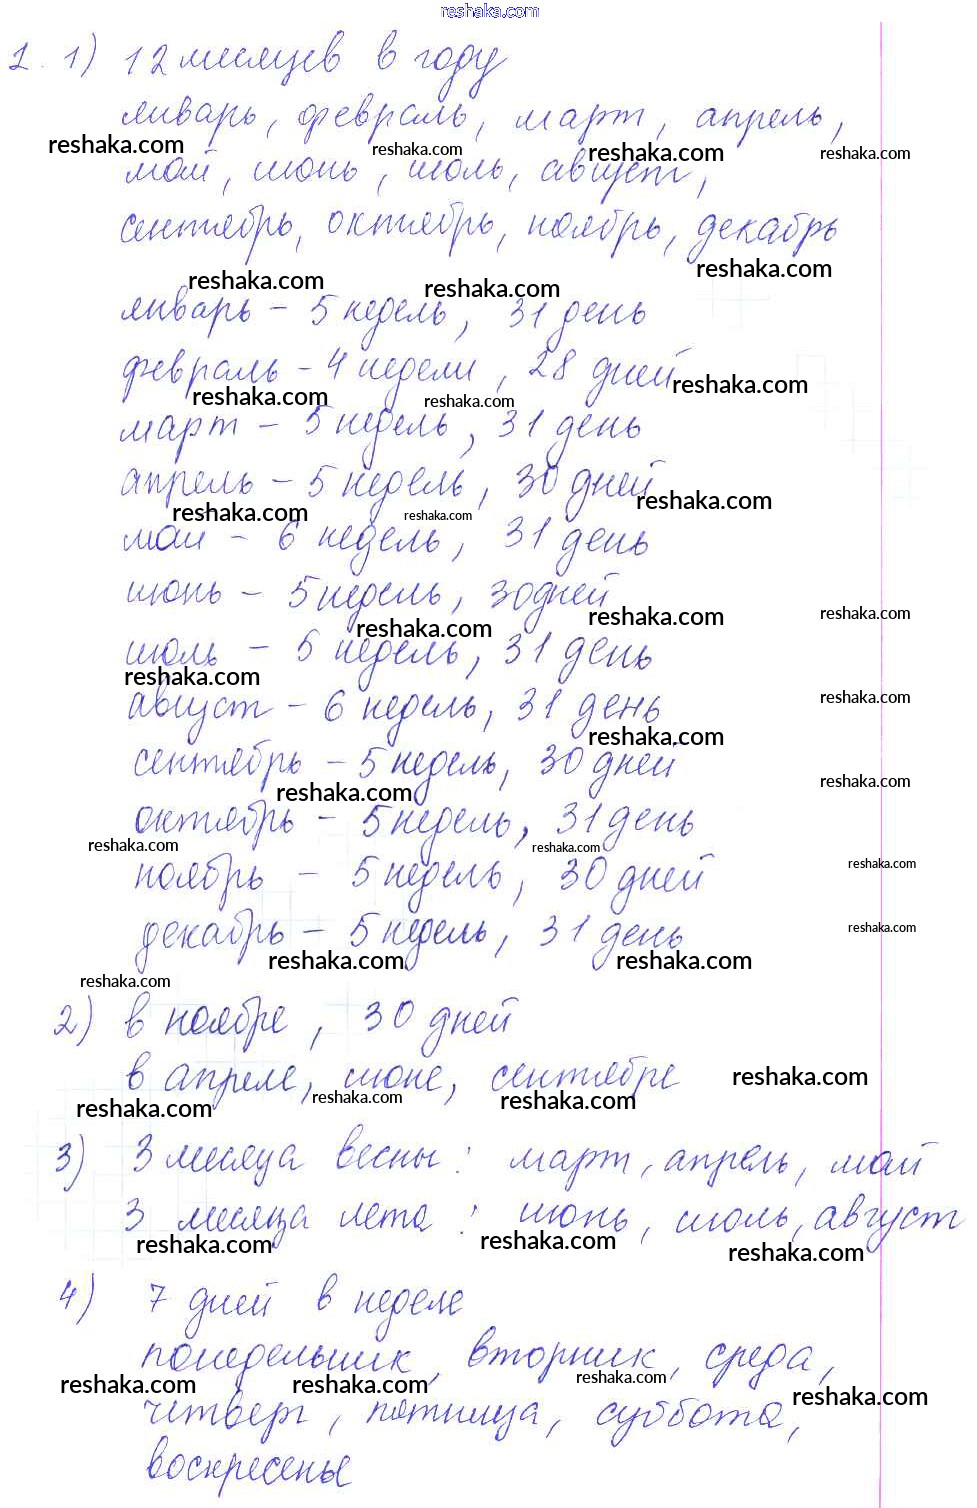 reshaka.com
1. 1) 12 месяцев в году
январь, февраль, март, апрель,
reshaka.com reshaka.com reshaka.com reshaka.com
май, июнь, июль, август,
сентябрь, октябрь, ноябрь, декабрь
reshaka.com reshaka.com reshaka.com
январь - 5 недель, 31 день
февраль - 4 недели, 28 дней
reshaka.com reshaka.com reshaka.com
март - 5 недель, 31 день
апрель - 5 недель, 30 дней
reshaka.com reshaka.com reshaka.com
май - 6 недель, 31 день
июнь - 5 недель, 30 дней
reshaka.com reshaka.com reshaka.com
июль - 5 недель, 31 день
reshaka.com reshaka.com
август - 6 недель, 31 день
reshaka.com
сентябрь - 5 недель, 30 дней
reshaka.com reshaka.com
октябрь - 5 недель, 31 день
reshaka.com reshaka.com reshaka.com
ноябрь - 5 недель, 30 дней
декабрь - 5 недель, 31 день
reshaka.com
reshaka.com reshaka.com reshaka.com
2) в ноябре, 30 дней
в апреле, июне, сентябре reshaka.com
reshaka.com reshaka.com reshaka.com
3) 3 месяца весны: март, апрель, май
3 месяца лета: июнь, июль, август
reshaka.com reshaka.com reshaka.com
4) 7 дней в неделе
понедельник, вторник, среда,
reshaka.com reshaka.com reshaka.com reshaka.com
четверг, пятница, суббота,
воскресенье